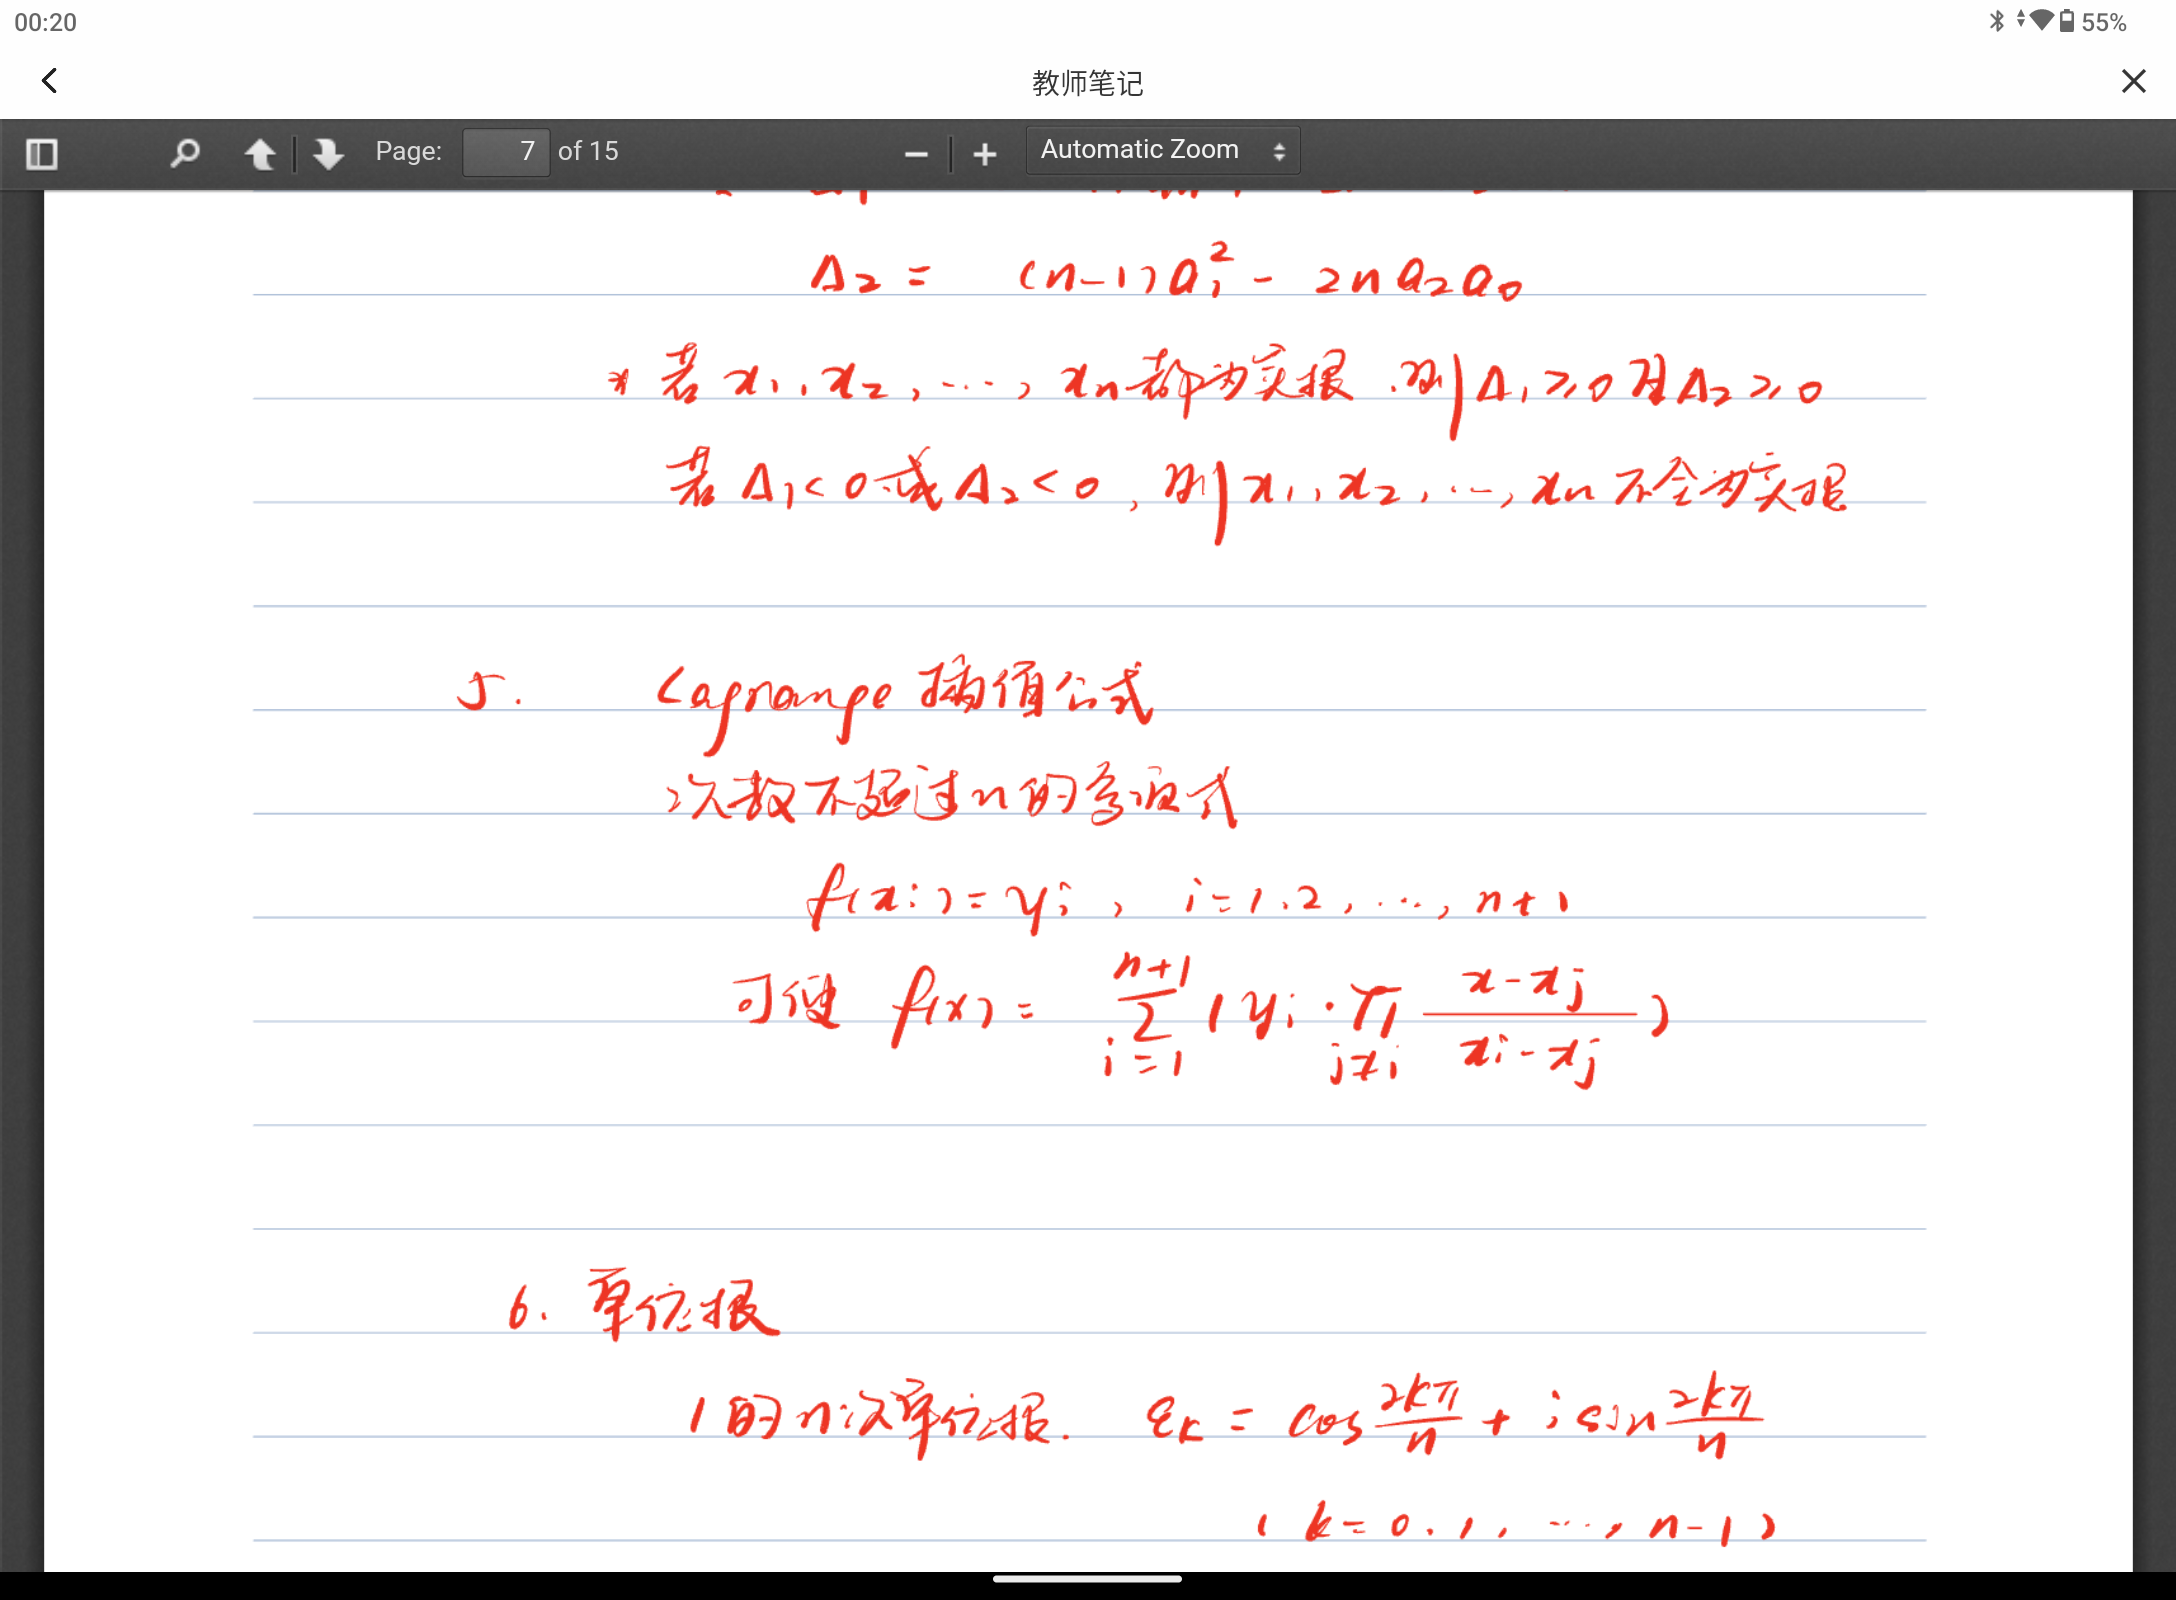 00:20
55%
教师笔记
Page: 7 of 15
Automatic Zoom
Δ₂ = (n-1)a₁² - 2na₂a₀
* 若 x₁, x₂, ..., xₙ都为实根. 则Δ₁≥0且Δ₂≥0
若 Δ₁<0或Δ₂<0, 则x₁, x₂, ..., xₙ不全为实根
5. Lagrange 插值公式
次数不超过n的多项式
f(xi)=yi, i=1.2, ..., n+1
可使 f(x) = \sum_{i=1}^{n+1} (yi · \prod_{j≠i} \frac{x-xj}{xi-xj})
6. 单位根
1的n次单位根. εk = cos \frac{2kπ}{n} + i sin \frac{2kπ}{n}
(k=0.1, ..., n-1)